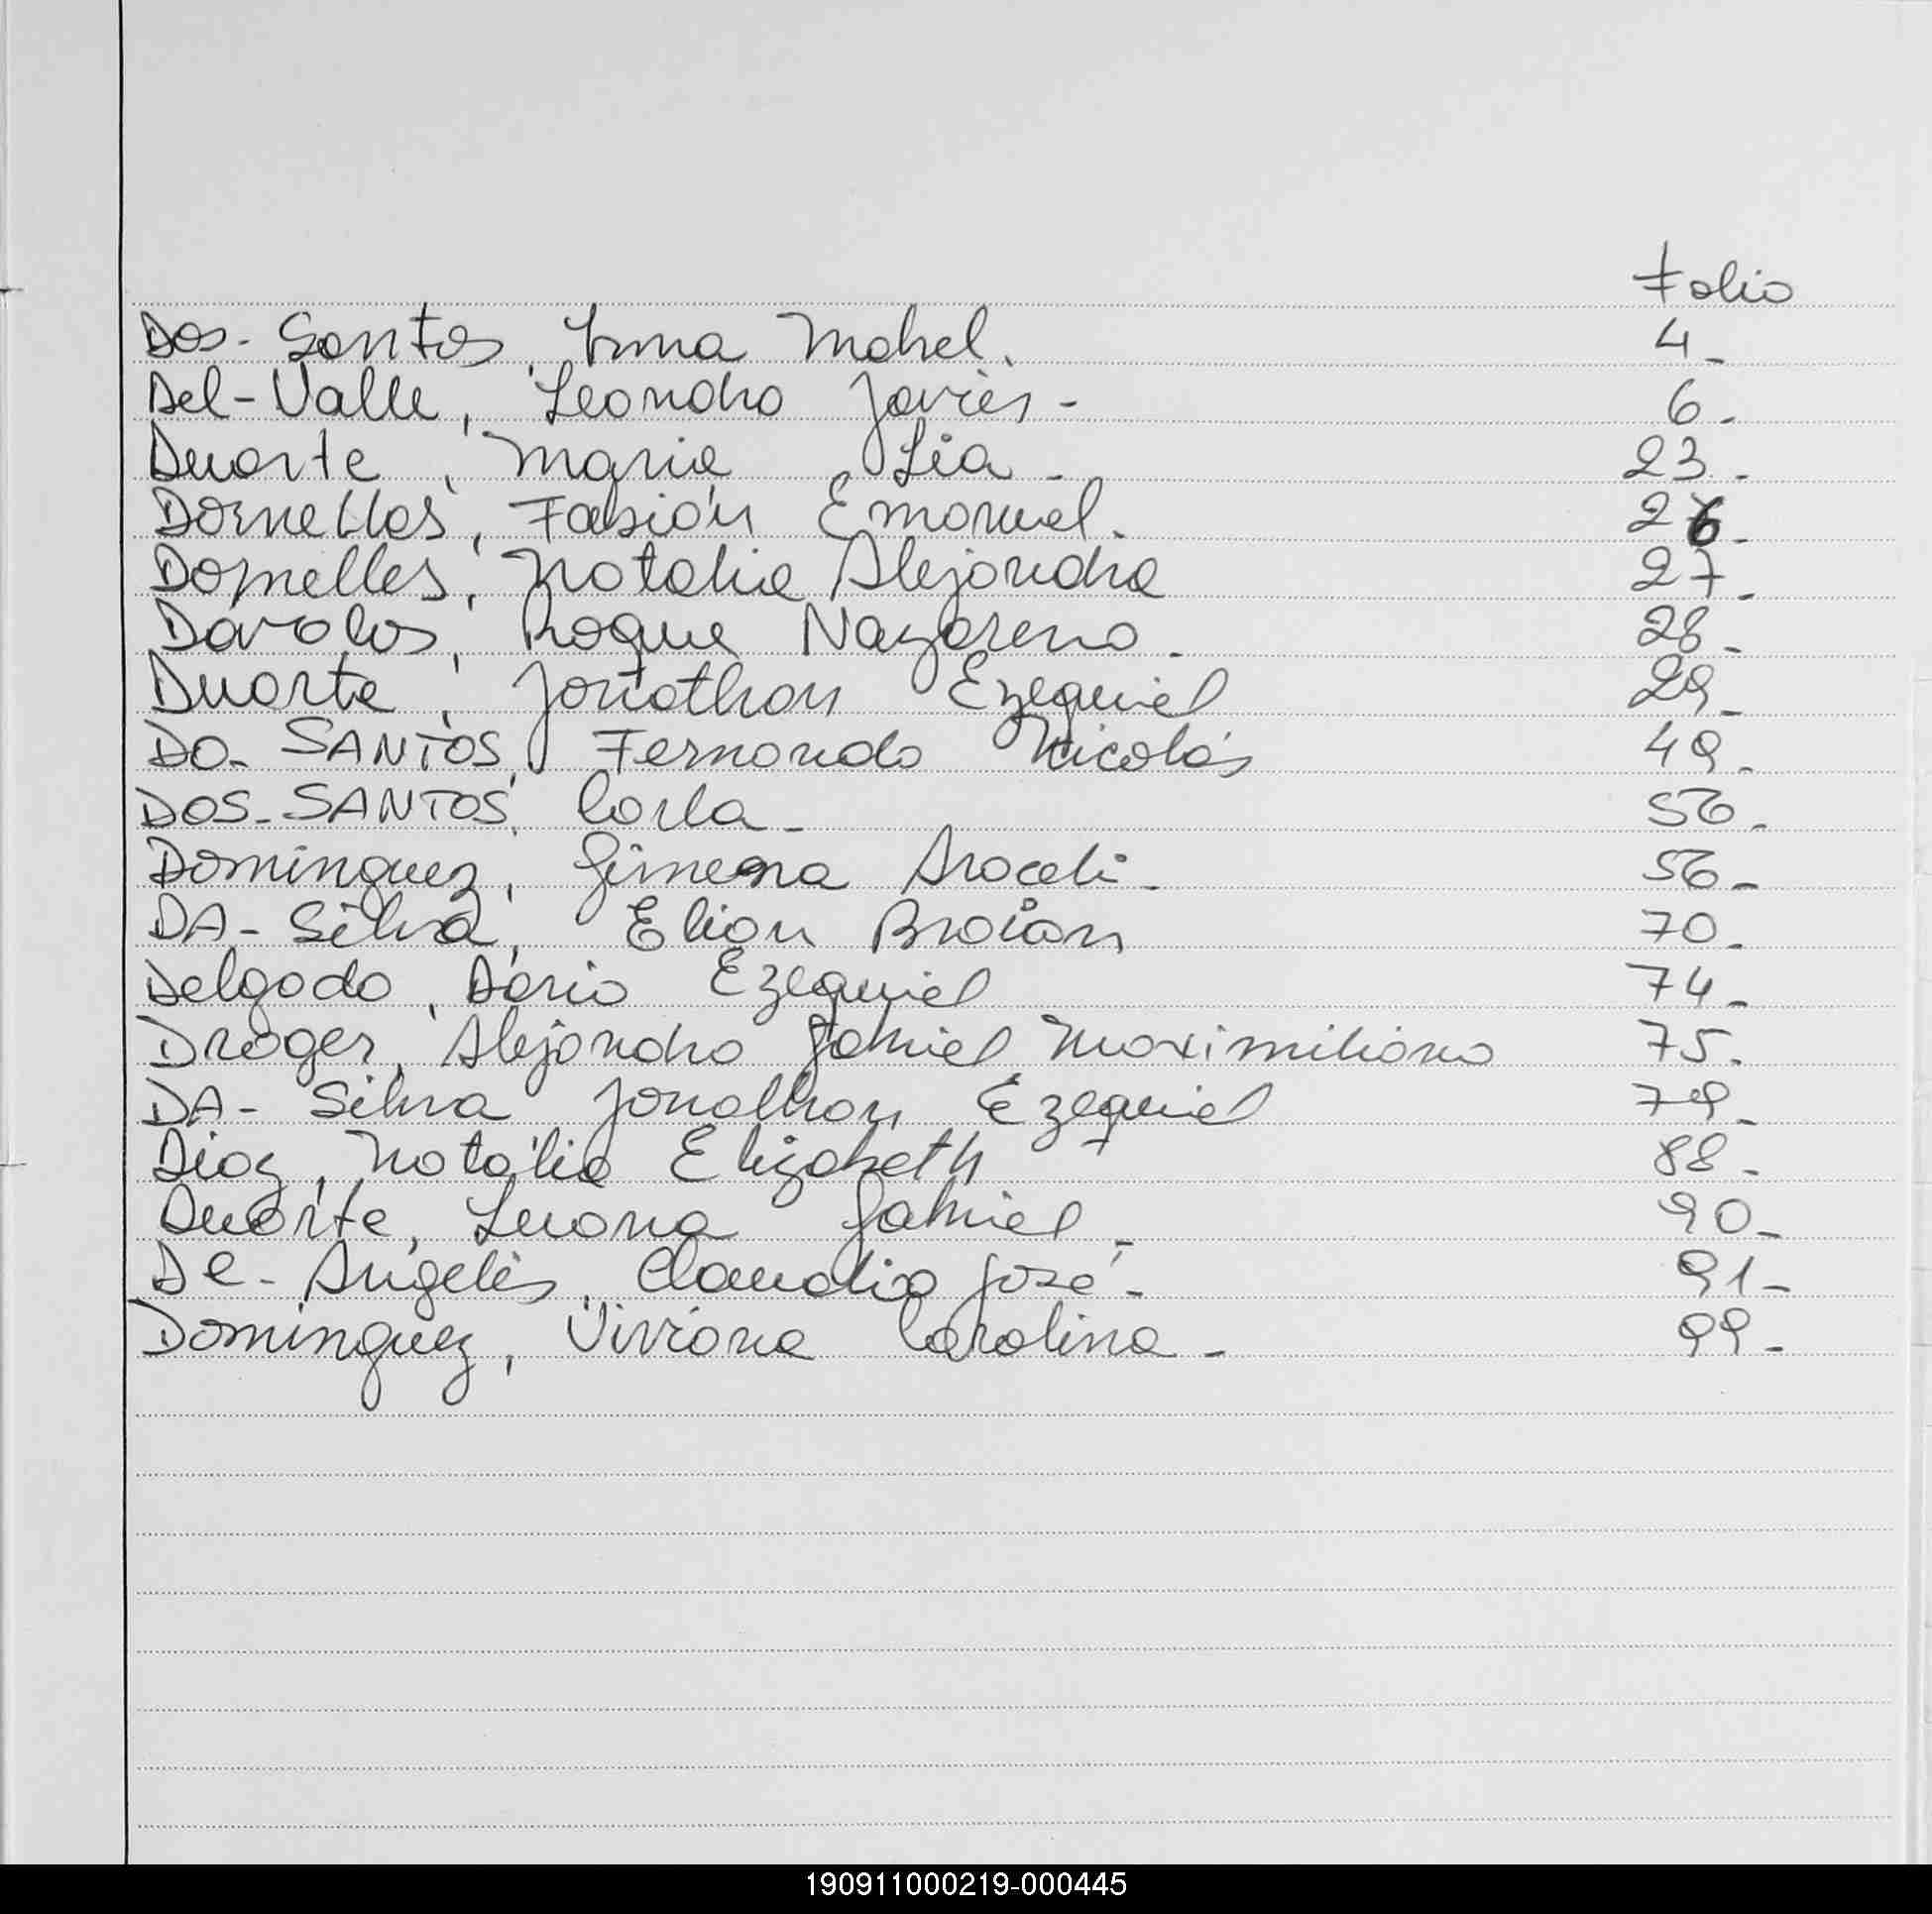 Folio
Dos-Santos, Irma Mabel. 4-
Del-Valle, Leandro Javier- 6-
Duarte, Maria Lia- 23-
Dornelles, Fabián Emanuel. 26-
Dornelles, Natalia Alejandra 27-
Davalos, Roque Nazareno- 28-
Duarte, Jonathan Ezequiel 29-
DO-SANTOS, Fernando Nicolás 49-
DOS-SANTOS, Carla- 56-
Dominguez, Gimena Araceli- 56-
DA-Silva, Elian Braian 70-
Delgado, Dario Ezequiel 74-
Drager, Alejandro Gabriel Maximiliano 75-
DA-Silva Jonathan Ezequiel 79-
Diaz, Natalia Elizabeth 88-
Duarte, Luana Gabriel- 90-
De-Angelis, Claudio José- 91-
Dominguez, Viviana Carolina- 99-
190911000219-000445